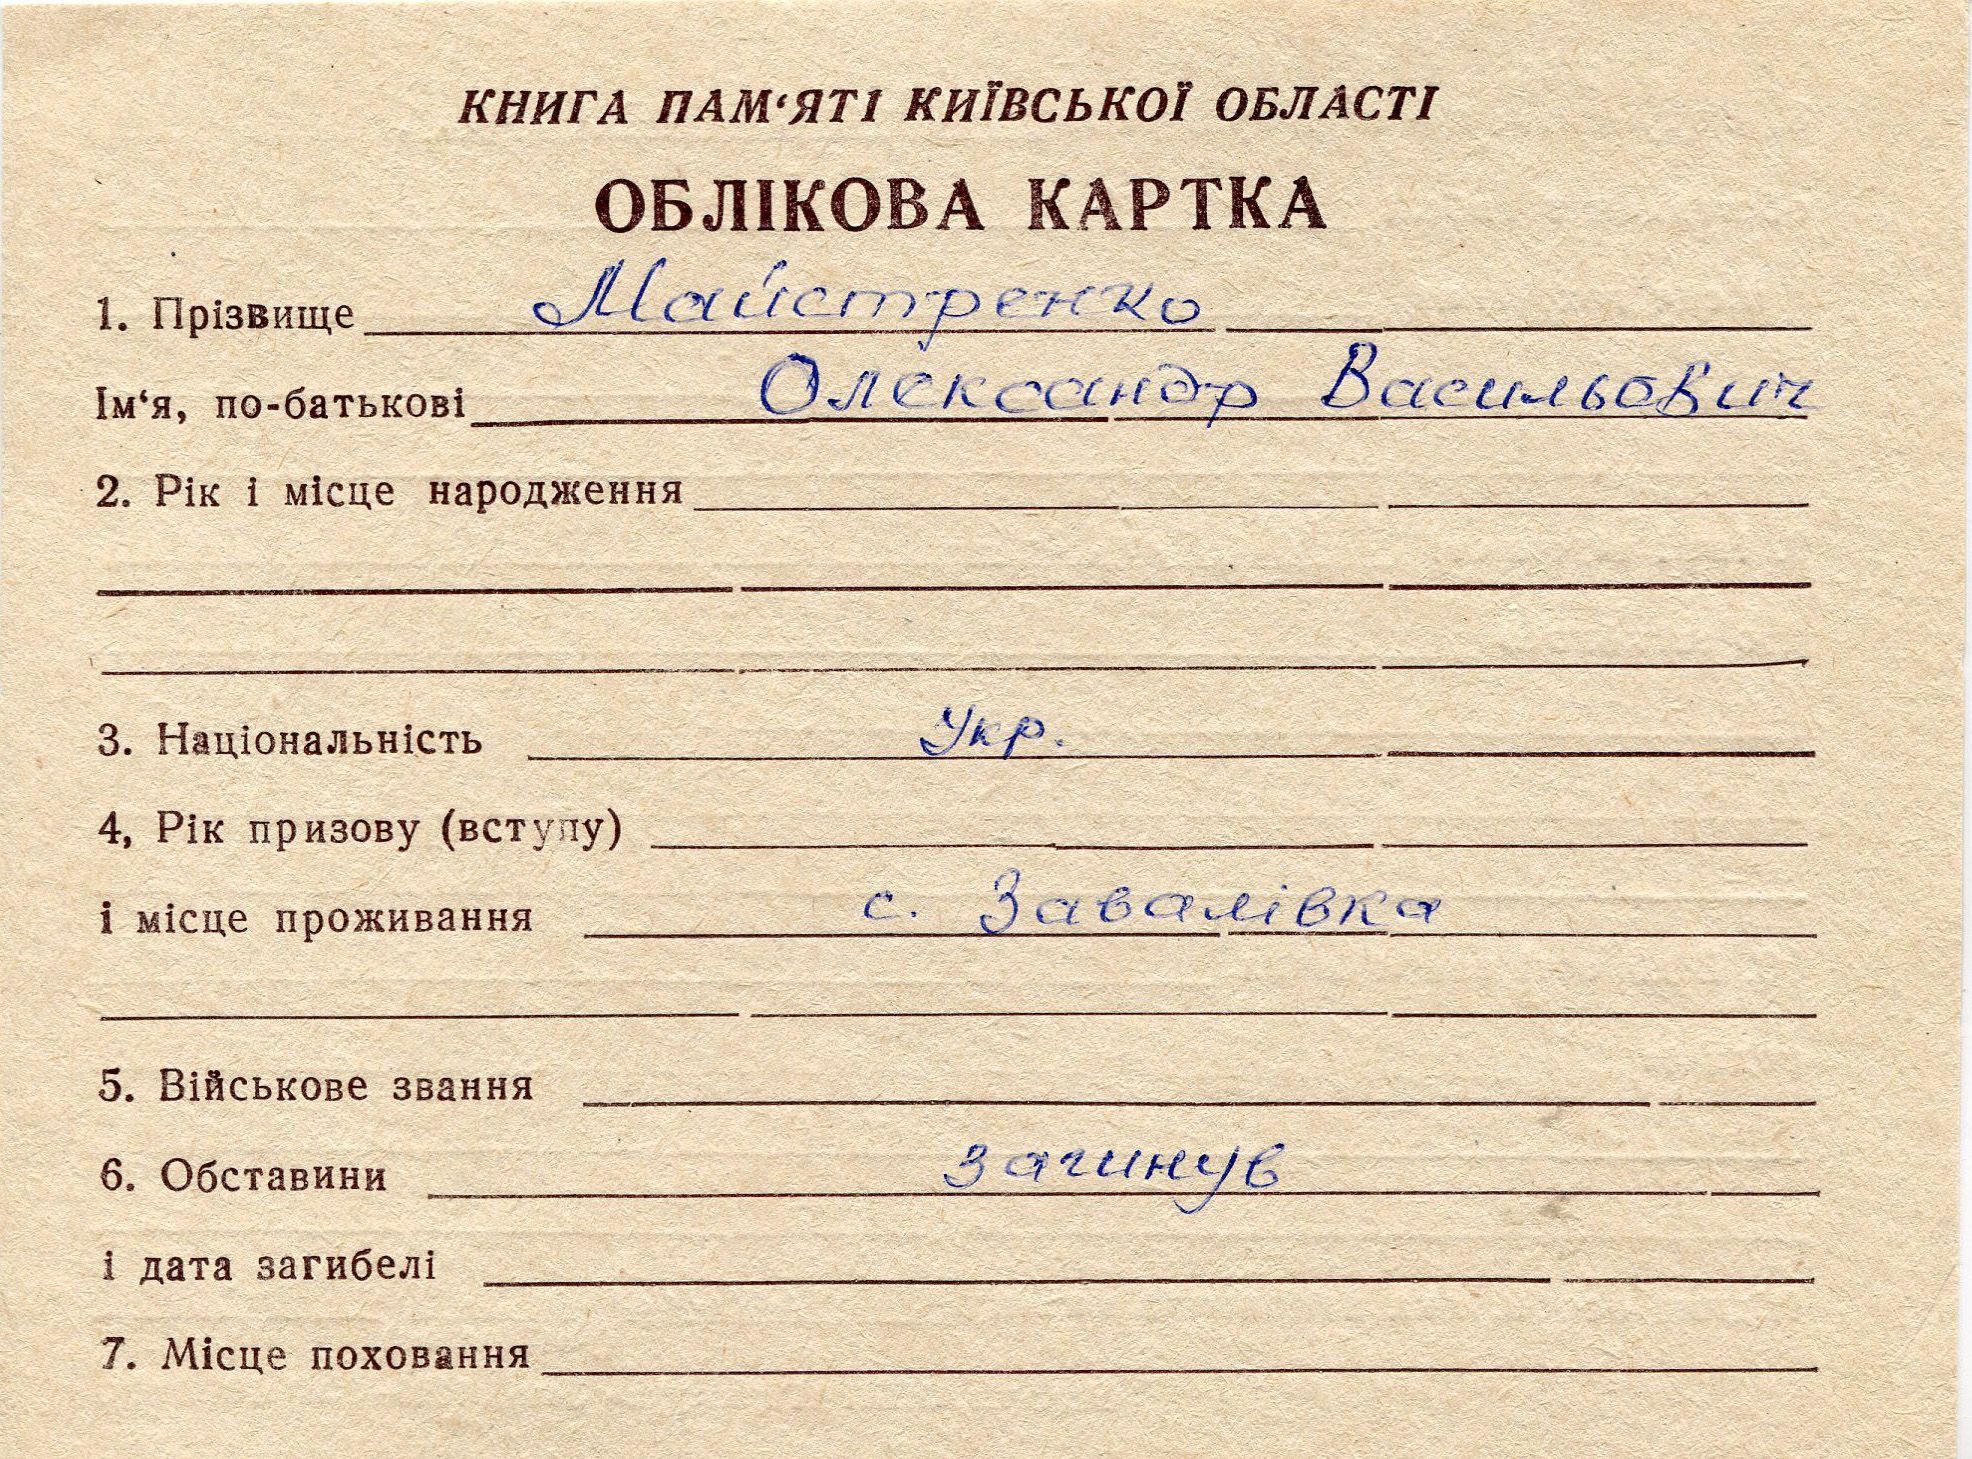 КНИГА ПАМ‘ЯТІ КИЇВСЬКОЇ ОБЛАСТІ
ОБЛІКОВА КАРТКА
1. Прізвище Майстренко
Ім‘я, по-батькові Олександр Васильович
2. Рік і місце народження
3. Національність Укр.
4, Рік призову (вступу)
і місце проживання с. Завалівка
5. Військове звання
6. Обставини загинув
і дата загибелі
7. Місце поховання